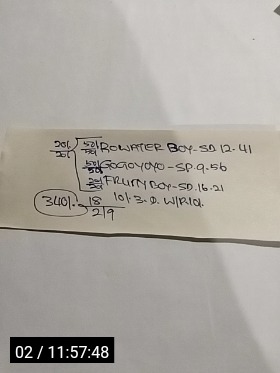 20/20 50/50 ROWATER BOY-SD 12.41
50/50 GOGOYOYO-SP.9.56
FRUITYBOY-SD.16.21
340/- 18 10/- 3.D. W/P/Q.
2/9
02 / 11:57:48